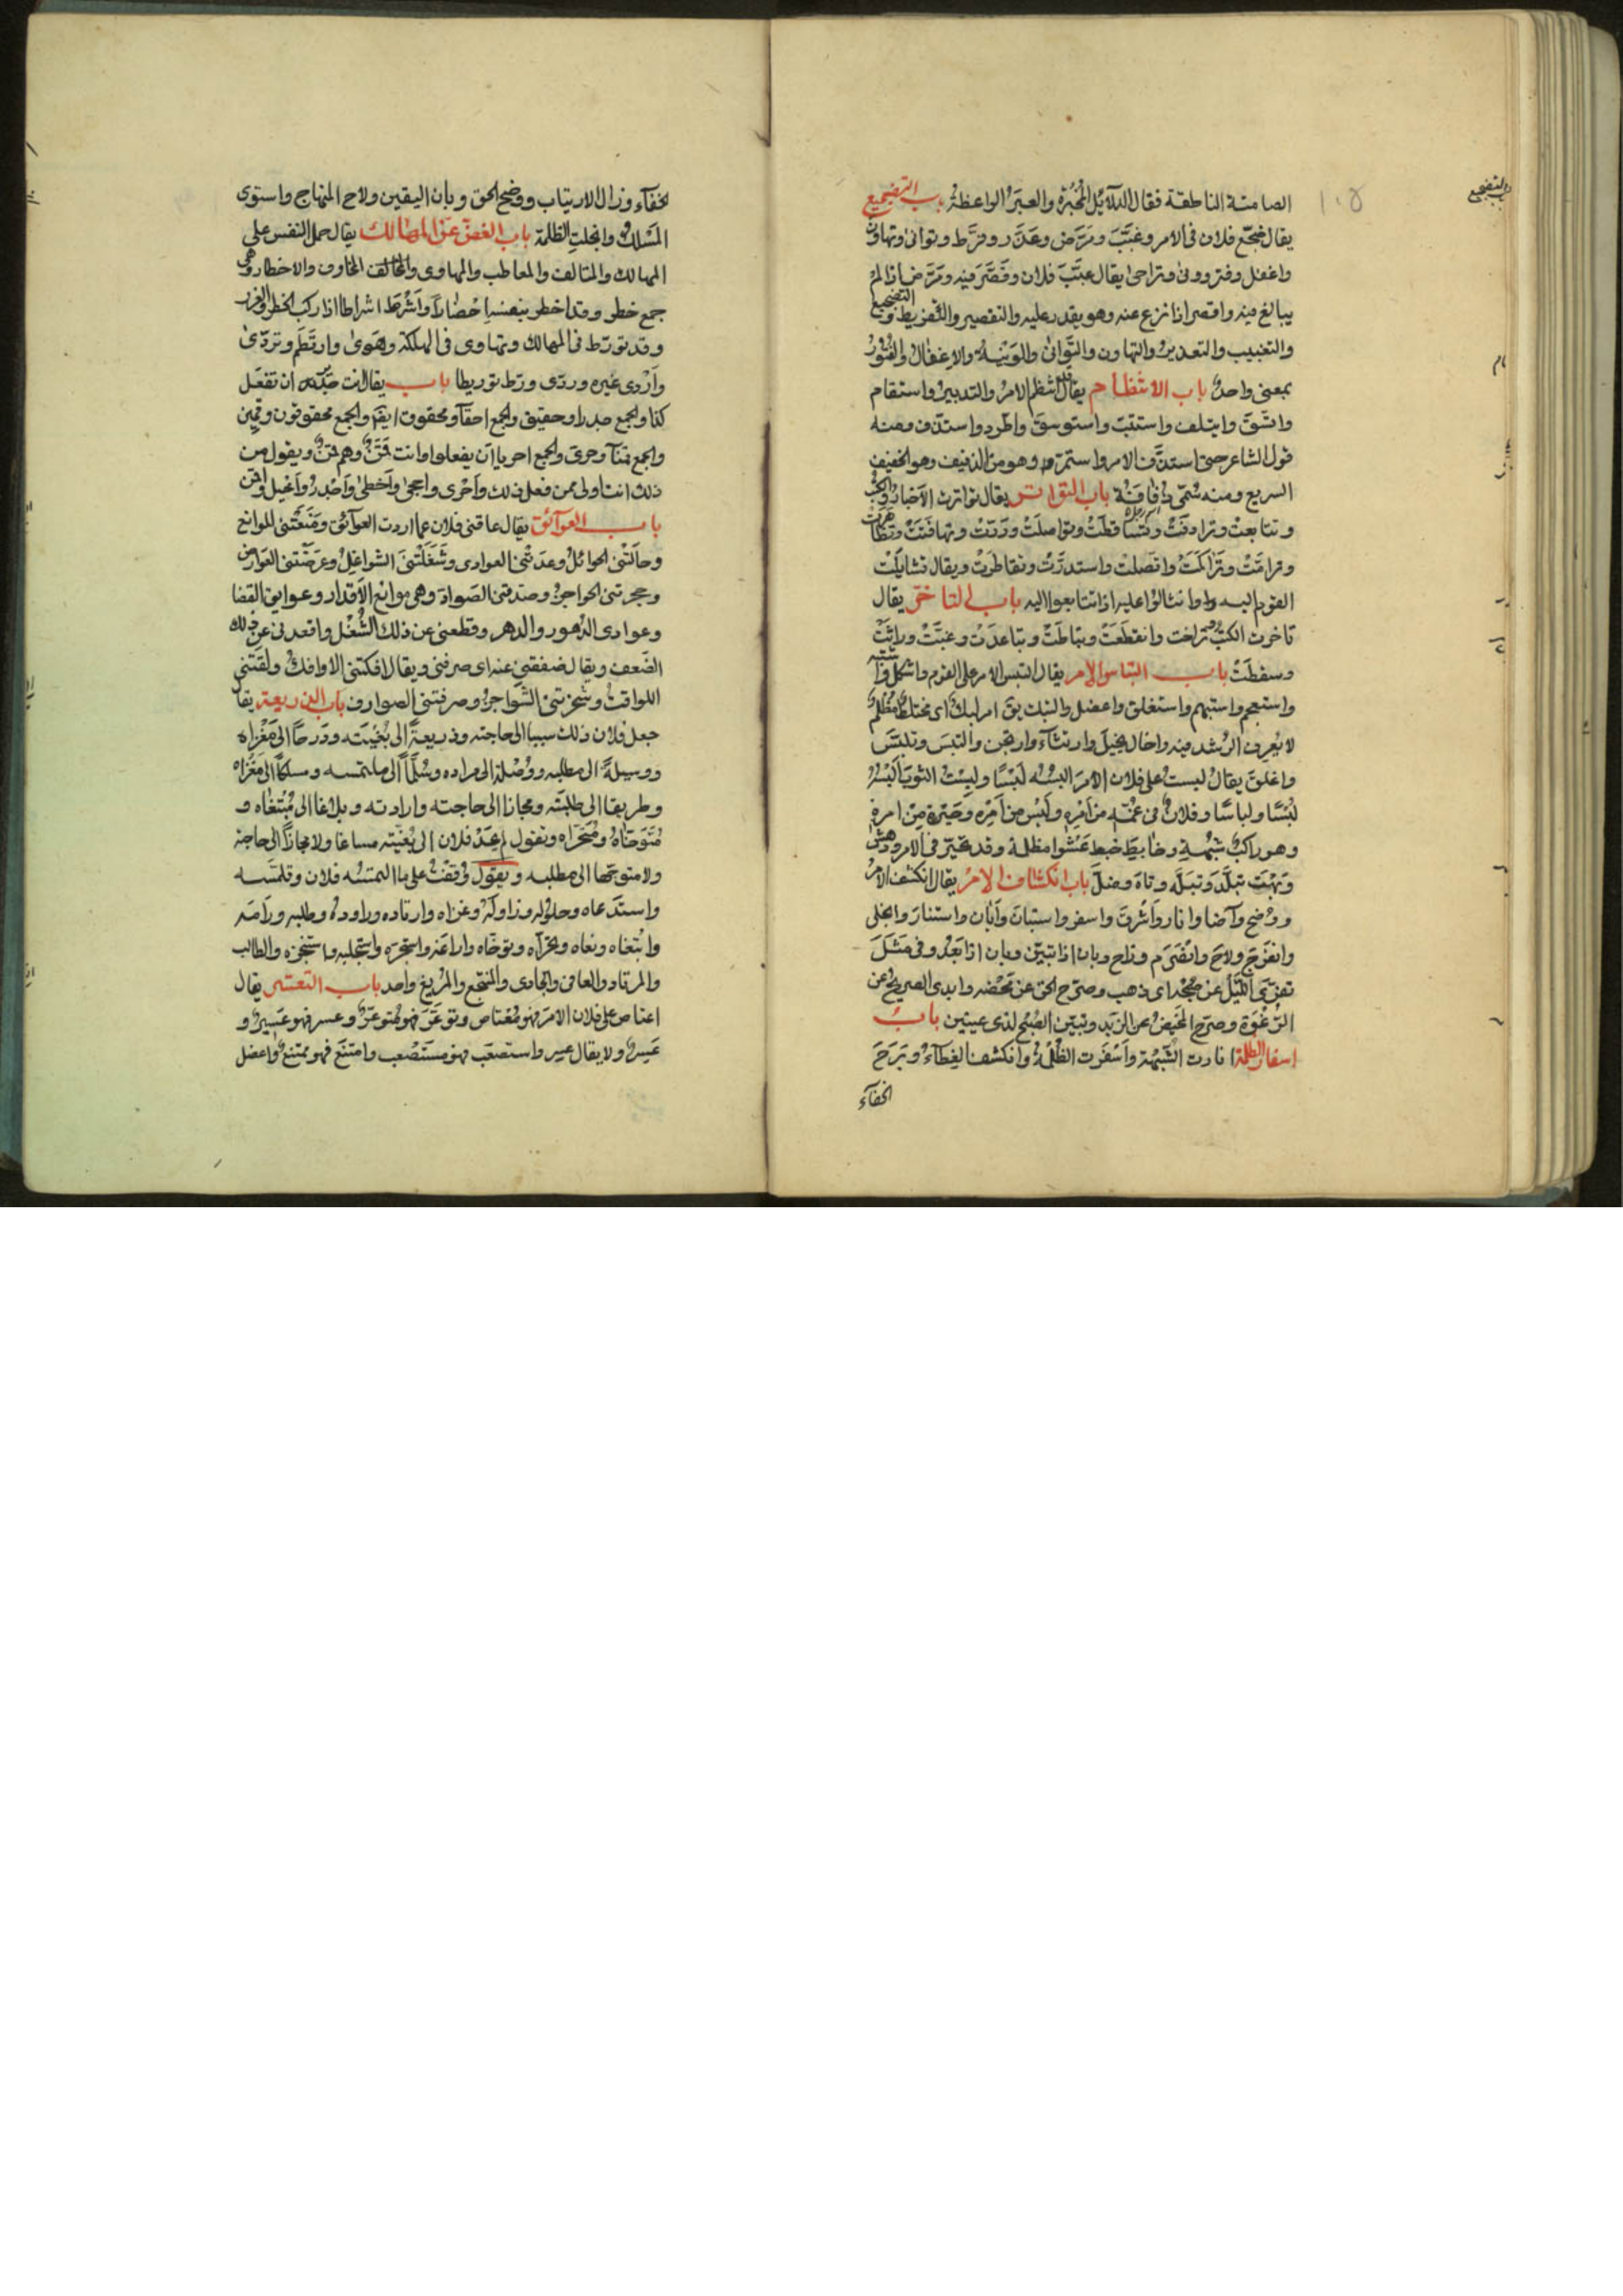 الصامتة الناطقة فقال الدلائل المخبرة والعبر الواعظة باب التضجيع
يقال ضجع فلان في الامر وغبب ومرض وعذر وفرط وتوانى وتهاون
واغفل وفتر وونى وتراخى يقال غبب فلان وقصر فيه ومرض اذا لم
يبالغ فيه واقصر اذا نزع عنه وهو يقدر عليه والتقصير والتفريط والتضجيع
والتغبيب والتعذير والتهاون والتوانى والونية والاغفال والفتور
بمعنى واحد باب الانتظام يقال انتظم الامر والتدبير واستقام
واتسق وايتلف واستتب واستوسق واطرد واستدف ومنه
قول الشاعر حتى استدف الامر واستمر وهو من الذفيف وهو الخفيف
السريع ومنه سمى ذفافة باب التواتر يقال تواترت الاخبار والكتب
وتتابعت وترادفت وتساقطت وتواصلت وتهافتت وتظاهرت
وترامت وتراكمت واتصلت واستدرت وتقاطرت ويقال تشايلت
القوم اليه وانثالوا عليه اذا تتابعوا اليه باب التاخر يقال
تاخرت الكتب وتراخت وانقطعت وتباطت وتباعدت وغبت وراثت
وسقطت باب التباس الامر يقال التبس الامر على القوم واشكل واشتبه
واستعجم واستبهم واستغلق واعضل والتبك يق امر لبك اى مختلط مظلم
لا يعرف الرشد فيه واخال يخيل وارتثاء وارتجن والتبس وتلبس
واغلق يقال لبست على فلان الامر البسه لبسا ولبست الثوب البسه
لبسا ولباسا وفلان فى غمة من امره ولبس من امره وحيرة من امره
وهو راكب شبهة وخابط خبط عشوا مظلة وقد تحير فى الامر ودهش
وبهت تبلد وتبله وتاه وضل باب انكشاف الامر يقال انكشف الامر
ووضح واضا وانار واشرق واسفر واستبان وابان واستنار وانجلى
وانفرج ولاح وانصرم وزاح وبان اذا تبين وبان اذا بعد وفى مثل
تفرى الليل عن صبحه اى ذهب وصرح الحق عن محضه وابدى الصريح عن
الرغوة وصرح المخيض عن الزبد وتبين الصبح لذى عينين باب
اسفار الظلمة انارت الشبهة واسفرت الظلمة وانكشف الغطاء وبرح
الخفاء
باب التضجيع
الخفاء وزال الارتياب ووضح الحق وبان اليقين ولاح المنهاج واستوى
المسلك وانجلت الظلمة باب الغض عن المهالك يقال حمل النفس على
المهالك والمتالف والمعاطب والمهاوى والمخاوف والاخطار وهى
جمع خطر وقد اخطر بنفسه اخطارا واشرط اشراطا اذا ركب الخطر والغرر
وقد تورط فى المهالك وتهاوى فى الهلكة وهوى وارتطم وتردى
واردى غيره وردى ورط توريطا باب يقال انت جدير ان تفعل
كذا والجمع جدرا وحقيق والجمع احقا ومحقوق ايضا والجمع محقوقون وقمين
والجمع قمنا وحرى والجمع احريا ان يفعلوا وانت قمن وهم قمن ويقول من
ذلك انت اولى من فعل ذلك واحرى واحجى واخطى واجدر واخيل واقمن
باب العوائق يقال عاقنى فلان عما اردت العوائق ومنعتنى الموانع
وحالتنى الحوائل وعدتنى العوادى وشغلتنى الشواغل وعرضتنى العوارض
وحجزتنى الحواجز وصدتنى الصواد وهى موانع الاقدار وعوايق القضا
وعوادى الدهور والدهر وقطعنى عن ذلك الشغل واقعدنى عن ذلك
الضعف ويقال صفقنى عنه اى صرفنى ويقال افكتنى الاوافك ولفتتنى
اللوافت وشجرتنى الشواجر وصرفتنى الصوارف باب الذريعة يقال
جعل فلان ذلك سببا الى حاجته وذريعة الى بغيته ودرجا الى مغزاه
ووسيلة الى مطلبه ووصلة الى مراده وسلما الى ملتمسه ومسلكا الى مغزاه
وطريقا الى طلبته ومجازا الى حاجته وارادته وبلاغا الى مبتغاه و
متوخاه ومتحراه وتقول لم يجد فلان الى بغيته مساغا ولا مجازا الى حاجة
ولا متوجها الى مطلبه ويقول وقفت على ما التمسه فلان وتلمسه
واستدعاه وحاوله وزاوله وغزاه وارتاده وراوده وطلبه ورامه
وابتغاه وبغاه وتحراه وتوخاه واراغه واستجره واستجلبه واستنجزه والطالب
والمرتاد والعافى والجادى والمنتجع والمريغ واحد باب التعسر يقال
اعتاص على فلان الامر فهو معتاص وتوعر فهو متوعر وعسر فهو عسير و
عسر ولا يقال عسر واستصعب فهو مستصعب وامتنع فهو ممتنع واعضل